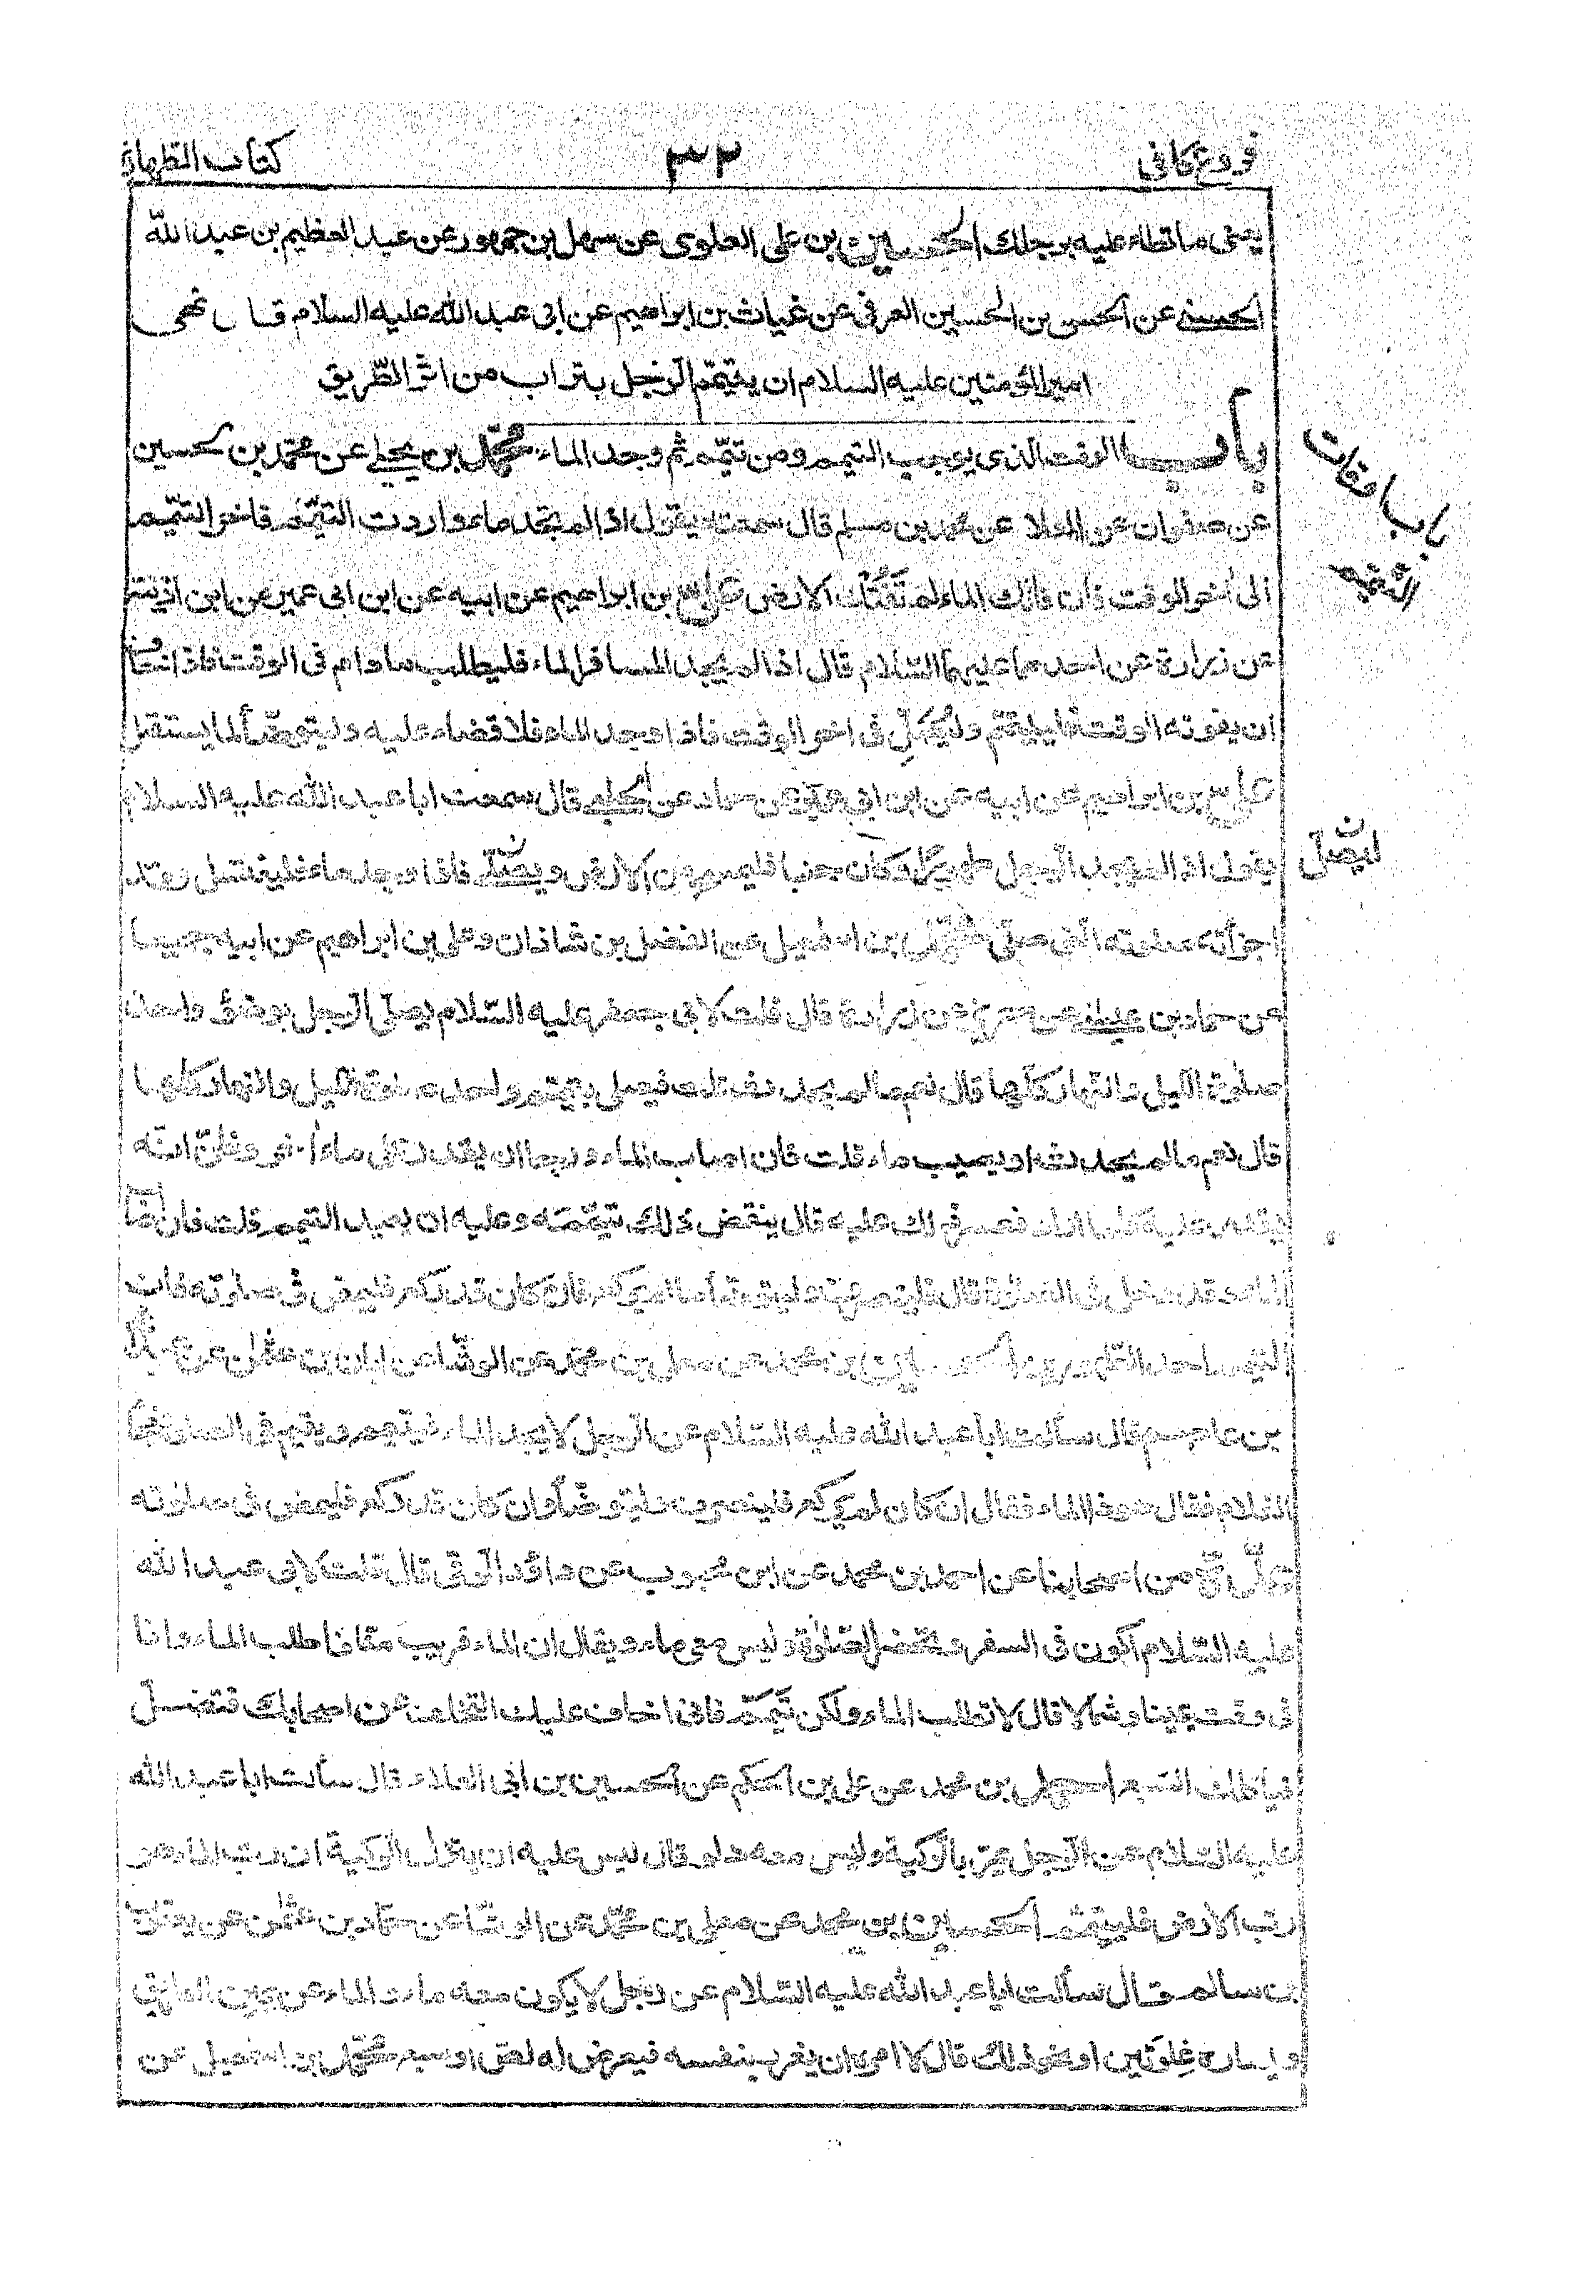 فروع كافي
٣٣
كتاب الطهارة
يعنى ما تطاء عليه برجلك الحسين بن على العلوى عن سهل بن جمهور عن عبد العظيم بن عبد الله
الحسنى عن الحسن بن الحسين العرفى عن غياث بن ابراهيم عن ابى عبد الله عليه السلام قال نهى
امير المؤمنين عليه السلام ان يتيمّم الرّجل بتراب من اثر الطّريق
باب الوقت الذى يوجب التيمم ومن تيمّم ثم وجد الماء محمّد بن يحيى عن محمّد بن الحسين
عن صفوان عن العلا عن محمد بن مسلم قال سمعته يقول اذا لم تجد ماء واردت التيمّم فاخر التيمّم
الى اخر الوقت فان فاتك الماء لم تفتك الارض علىّ بن ابراهيم عن ابيه عن ابن ابى عمير عن ابن اذينة
عن زرارة عن احدهما عليهما السّلام قال اذا لم يجد المسافر الماء فليطلب ما دام فى الوقت فاذا خاف
ان يفوته الوقت فليتيمّم وليصلّ فى اخر الوقت فاذا وجد الماء فلا قضاء عليه وليتوضّأ لما يستقبل
علىّ بن ابراهيم عن ابيه عن ابن ابى عمير عن حماد عن الحلبى قال سمعت ابا عبد الله عليه السلام
يقول اذا لم يجد الرّجل طهورا وكان جنبا فليمسح من الارض ويصلّى فاذا وجد ماء فليغتسل وقد
اجزأته صلوته الّتى صلّى محمّد بن اسمعيل عن الفضل بن شاذان وعلى بن ابراهيم عن ابيه جميعا
عن حماد بن عيسى عن حريز عن زرارة قال قلت لابى جعفر عليه السّلام يصلّى الرّجل بوضوء واحد
صلوة اللّيل والنّهار كلّها قال نعم ما لم يحدث قلت فيصلى بتيمّم واحد صلوة اللّيل والنهار كلها
قال نعم ما لم يحدث او يصيب ماء قلت فان اصاب الماء ورجا ان يقدر على ماء اخر وظنّ انّه
يقدر عليه فلما اراده فعسر ذلك عليه قال ينقض ذلك تيمّمه وعليه ان يعيد التيمم قلت فان اصاب
الماء وقد دخل فى الصّلوة قال فلينصرف وليتوضّأ ما لم يركع فان كان قد ركع فليمض فى صلوته فان
التيمم احد الطّهورين الحسين بن محمد عن معلى بن محمّد عن الوشّا عن ابان بن عثمان عن عبد الله
بن عاصم قال سألت ابا عبد الله عليه السّلام عن الرّجل لا يجد الماء فيتيمم ويقيم فى الصلوة فجاء
الغلام فقال هوذا الماء فقال ان كان لم يركع فلينصرف وليتوضّأ وان كان قد ركع فليمض فى صلوته
عدّة من اصحابنا عن احمد بن محمد عن ابن محبوب عن داود الرّقّى قال قلت لابى عبد الله
عليه السّلام اكون فى السفر وتحضر الصّلوة وليس معى ماء ويقال ان الماء قريب منّا فاطلب الماء وانا
فى وقت يمينا وشمالا قال لا تطلب الماء ولكن تيمّم فانى اخاف عليك التخلّف عن اصحابك فتضلّ
فيأكلك السّبع احمد بن محمد عن على بن الحكم عن الحسين بن ابى العلاء قال سألت ابا عبد الله
عليه السّلام عن الرّجل يمرّ بالرّكية وليس معه دلو قال ليس عليه ان يدخل الرّكية ان ربّ الماء هو
ربّ الارض فليتيمّم الحسين بن محمد عن معلى بن محمّد عن الوشّا عن حمّاد بن عثمن عن يعقوب
بن سالم قال سألت ابا عبد الله عليه السّلام عن رجل لا يكون معه ماء والماء عن يمين الطريق
ويساره غلوتين او نحو ذلك قال لا آمره ان يغرر بنفسه فيعرض له لصّ او سبع محمّد بن اسمعيل عن
باب اوقات
التيمّم
ليصلّ ن